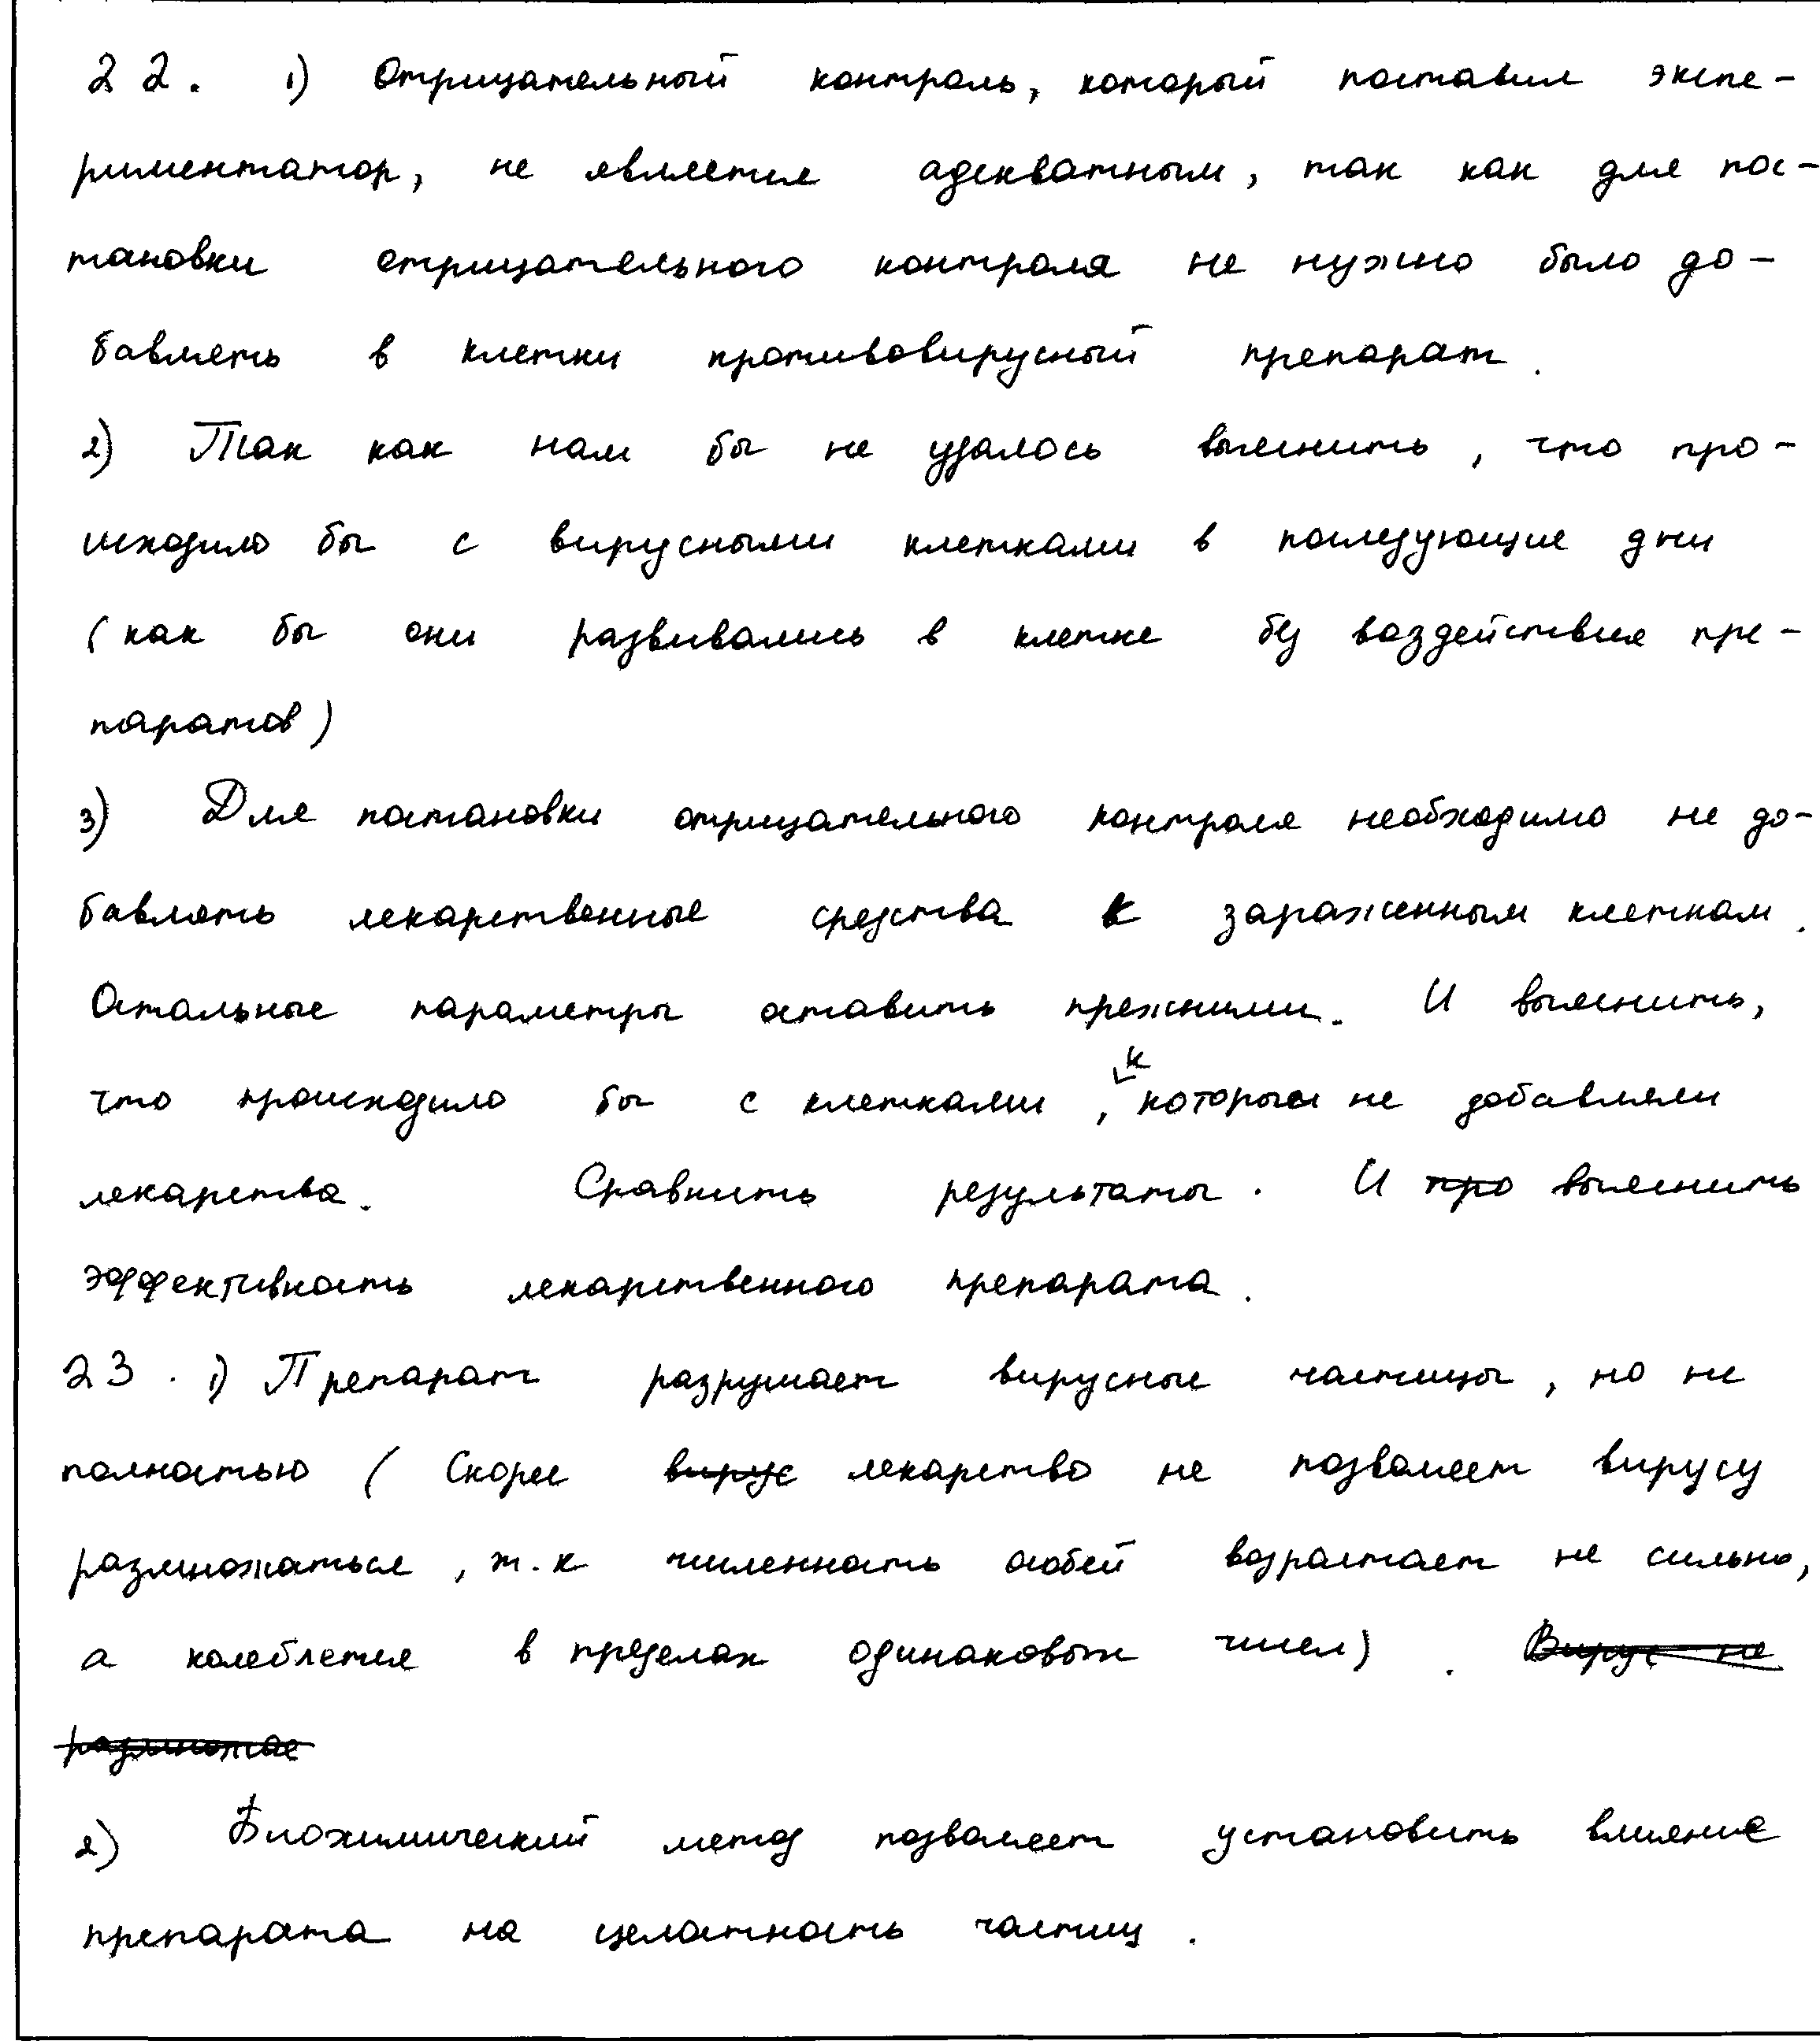 22. 1) Отрицательный контроль, который поставил экспе-
риментатор, не является адекватным, так как для пос-
тановки отрицательного контроля не нужно было до-
бавлять в клетки противовирусный препарат.
2) Так как нам бы не удалось выяснить, что про-
исходило бы с вирусными клетками в последующие дни
(как бы они развивались в клетке без воздействия пре-
паратов)
3) Для постановки отрицательного контроля необходимо не до-
бавлять лекарственные средства к зараженным клеткам.
Остальные параметры оставить прежними. И выяснить,
что происходило бы с клетками, к которым не добавляли
лекарства. Сравнить результаты. И про выяснить
эффективность лекарственного препарата.
23. 1) Препарат разрушает вирусные частицы, но не
полностью (Скорее вирус лекарство не позволяет вирусу
размножаться, т.к численность особей возрастает не сильно,
а колеблется в пределах одинаковых чисел). Вирус не
размножае
2) Биохимический метод позволяет установить влияние
препарата на целостность частиц.